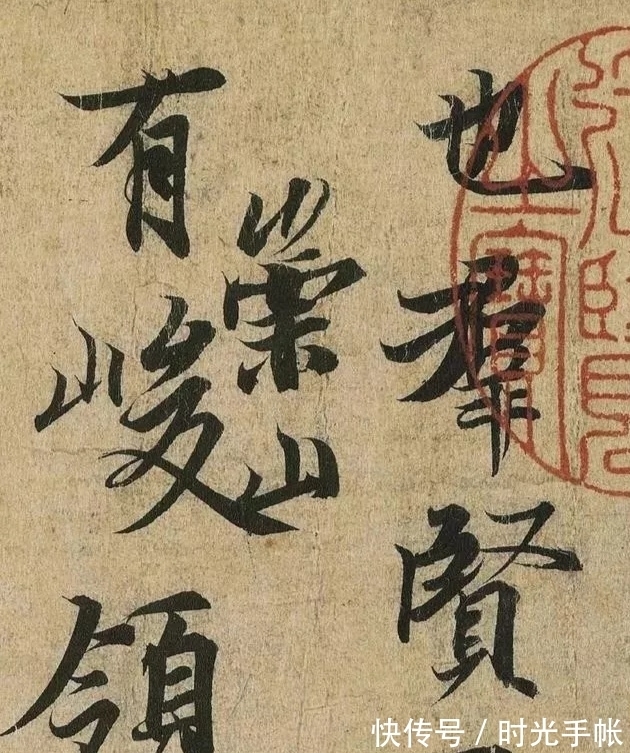 也羣賢
崇山
有峻領
快传号 / 时光手帐